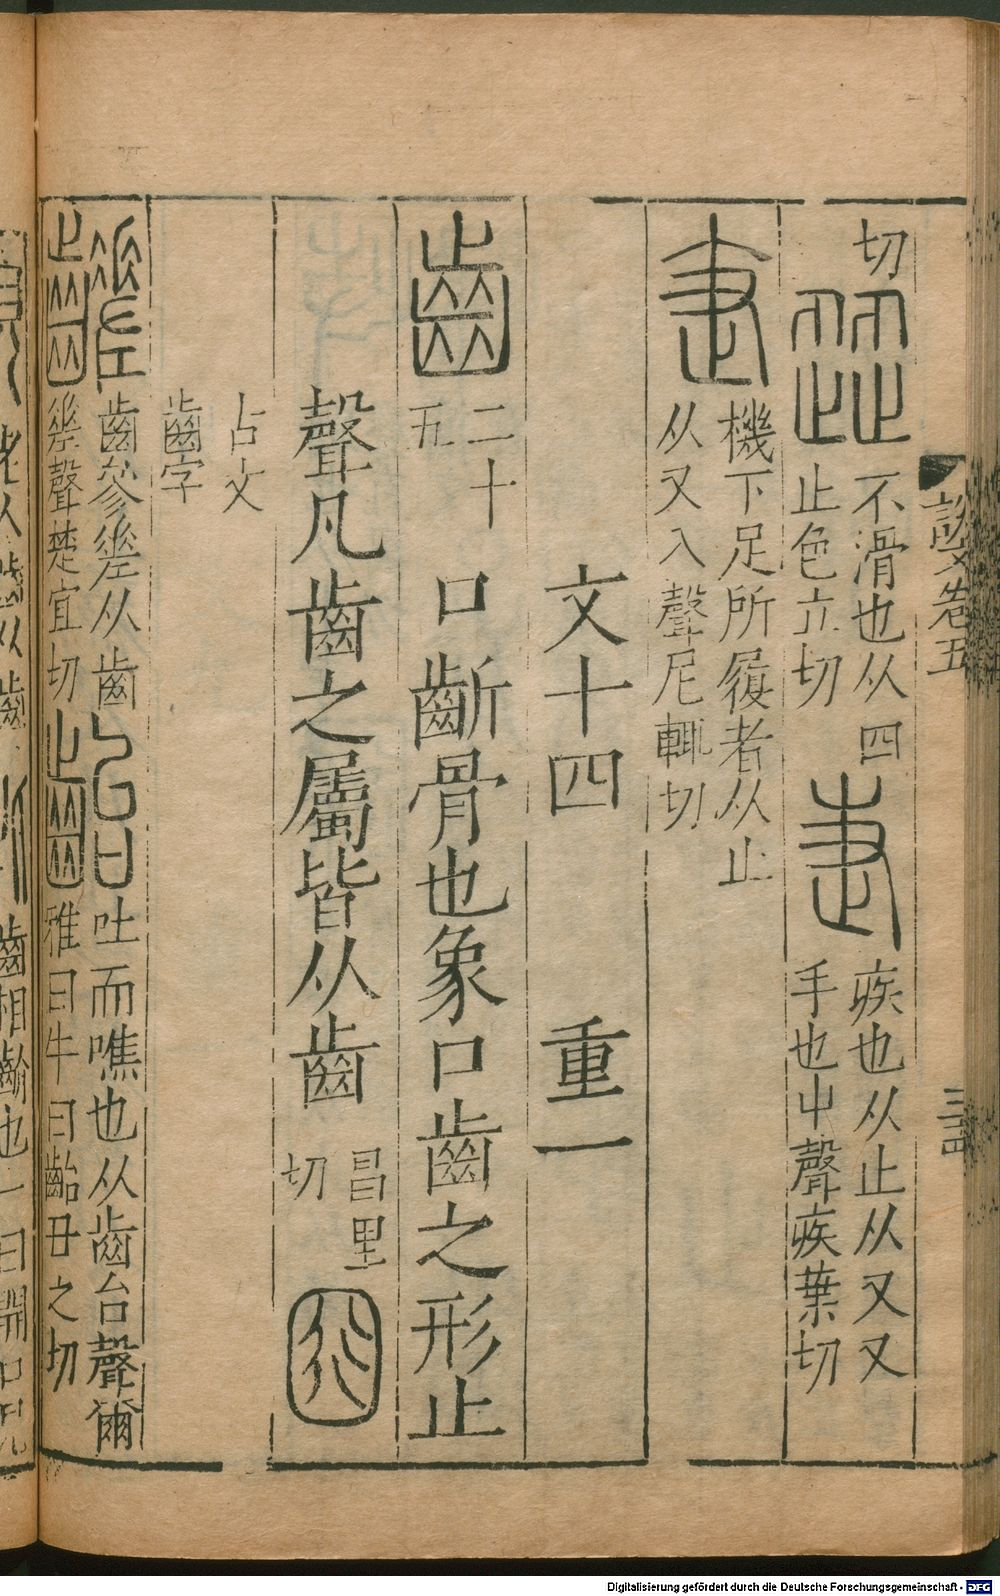 切澀不滑也从四
止色立切疌疾也从止从又又
手也屮聲疾葉切
𤴕機下足所履者从止
从又入聲尼輒切
文十四 重一
齒二十
五
口齗骨也象口齒之形止
聲凡齒之屬皆从齒昌里
切
古文
齒字
齹齒參差从齒
差聲楚宜切齝吐而噍也从齒台聲爾
雅曰牛曰齝丑之切
說文卷五
Digitalisierung gefördert durch die Deutsche Forschungsgemeinschaft - DFG